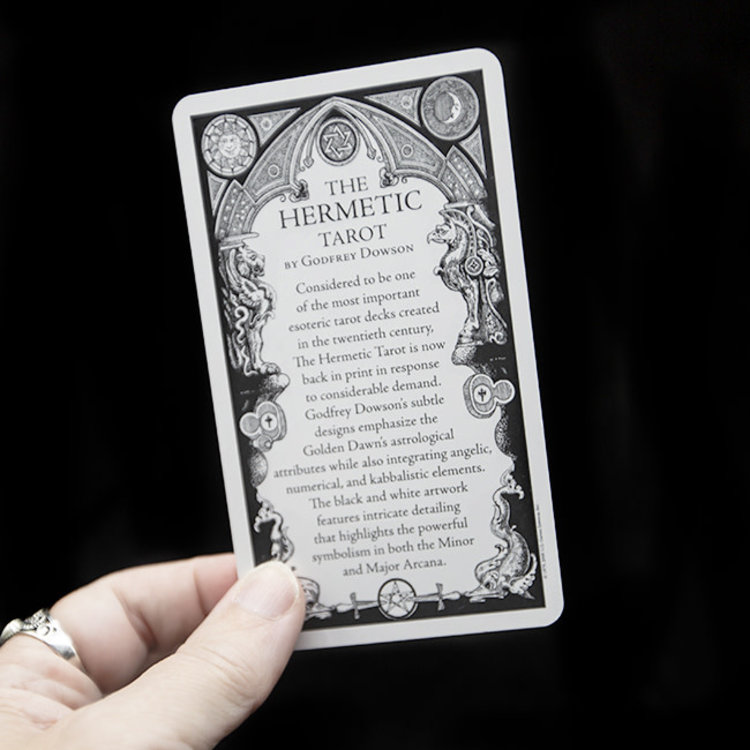 THE
HERMETIC
TAROT
BY GODFREY DOWSON
Considered to be one
of the most important
esoteric tarot decks created
in the twentieth century,
The Hermetic Tarot is now
back in print in response
to considerable demand.
Godfrey Dowson's subtle
designs emphasize the
Golden Dawn's astrological
attributes while also integrating angelic,
numerical, and kabbalistic elements.
The black and white artwork
features intricate detailing
that highlights the powerful
symbolism in both the Minor
and Major Arcana.